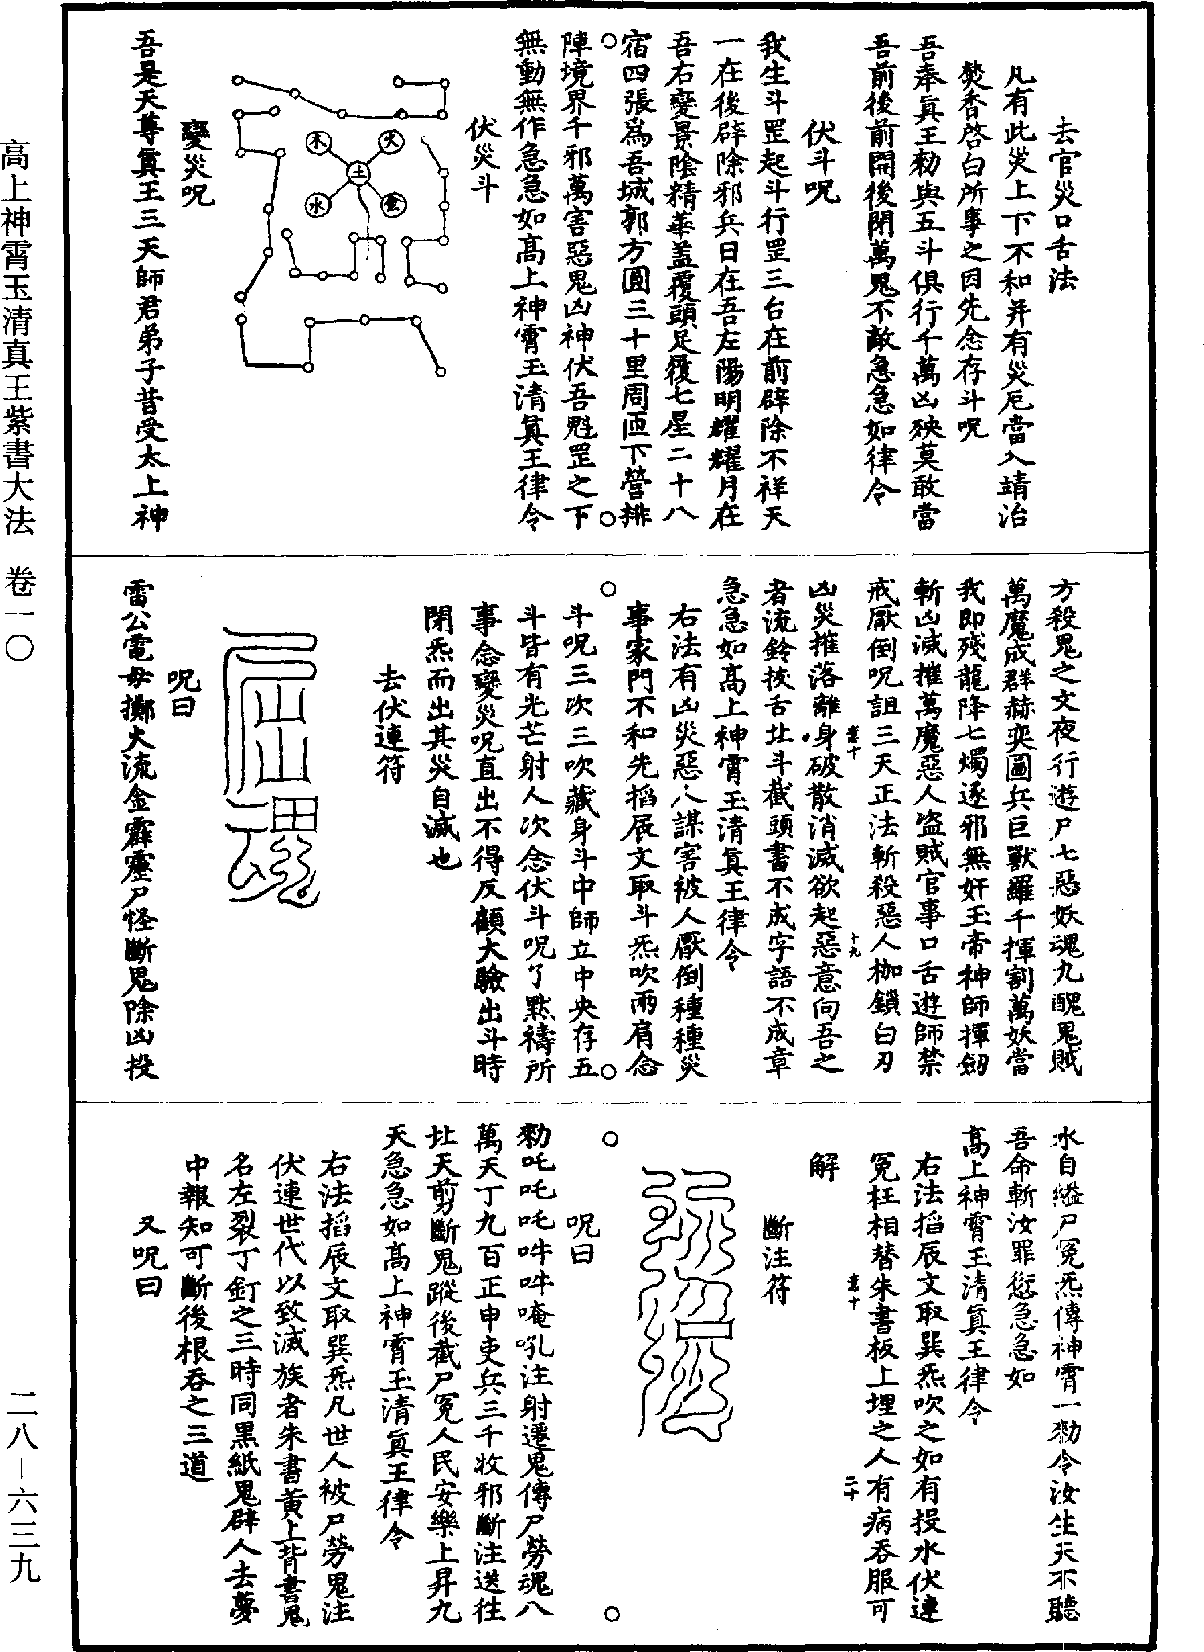 高上神霄玉清真王紫書大法　卷一〇
二八—六三九
去官災口舌法
凡有此災上下不和并有災厄當入靖治
焚香啓白所事之因先念存斗呪
吾奉眞王勑與五斗俱行千萬凶殃莫敢當
吾前後前開後閉萬鬼不敵急急如律令
伏斗呪
我生斗罡起斗行罡三台在前辟除不祥天
一在後辟除邪兵日在吾左陽明耀耀月在
吾右變景陰精華盖覆頭足履七星二十八
宿四張爲吾城郭方圓三十里周匝下營排
陣境界千邪萬害惡鬼凶神伏吾魁罡之下
無動無作急急如高上神霄玉清眞王律令
伏災斗
木
火
土
水
金
變災呪
吾是天尊眞王三天師君弟子昔受太上神
方殺鬼之文夜行遊尸七惡妖魂九醜鬼賊
萬魔成群赫奕圖兵巨獸羅千揮割萬妖當
我即殘龍降七燭逐邪無奸玉帝神師揮劒
斬凶滅摧萬魔惡人盗賊官事口舌遊師禁
戒厭倒呪詛三天正法斬殺惡人枷鎖白刃
凶災摧落離身破散消滅欲起惡意向吾之
者流鈴拔舌北斗截頭書不成字語不成章
急急如高上神霄玉清眞王律令
右法有凶災惡人謀害被人厭倒種種災
事家門不和先搯辰文取斗炁吹兩肩念
斗呪三次三吹藏身斗中師立中央存五
斗皆有光芒射人次念伏斗呪了黙禱所
事念變災呪直出不得反顧大驗出斗時
閉炁而出其災自滅也
去伏連符
呪曰
雷公電母擲火流金霹靂尸怪斷鬼除凶投
卷十
十九
水自縊尸冤炁傳神霄一勑令汝生天不聽
吾命斬汝罪愆急急如
高上神霄玉清眞王律令
右法搯辰文取巽炁吹之如有投水伏連
冤枉相替朱書板上埋之人有病吞服可
解
卷十
二十
斷注符
呪曰
勑吒吒吒吽吽唵吼注射還鬼傳尸勞魂八
萬天丁九百正申吏兵三千收邪斷注送往
北天剪斷鬼蹤後截尸冤人民安樂上昇九
天急急如高上神霄玉清眞王律令
右法搯辰文取巽炁凡世人被尸勞鬼注
伏連世代以致滅族者朱書黄上背書鬼
名左裂丁釘之三時同黒紙鬼辟人去夢
中報知可斷後根吞之三道
又呪曰